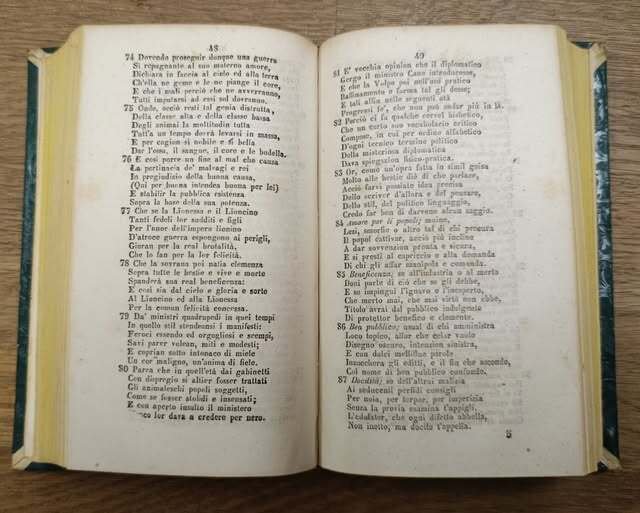 48
74 Dovendo proseguir dunque una guerra
Sì repugnante al suo materno amore,
Dichiara in faccia al cielo ed alla terra
Ch'ella ne geme e ne piange il core,
E che i mali perciò che ne avverranno,
Tutti imputarsi ad essi sol dovranno.
75 Onde, acciò resti tal genia distrutta,
Della classe alta e della classe bassa
Degli animai la moltitudin tutta
Tutt'a un tempo dovrà levarsi in massa,
E per cagion sì nobile e sì bella
Dar l'ossa, il sangue, il core e le budella.
76 E così porre un fine al mal che causa
La pertinacia de' malvagi e rei
In pregiudicio della buona causa,
(Qui per buona intendea buona per lei)
E stabilir la pubblica esistenza
Sopra la base della sua potenza.
77 Che se la Lionessa e il Lioncino
Tanti fedeli lor sudditi e figli
Per l'onor dell'impero lionino
D'atroce guerra espongono ai perigli,
Giuran per la real brutalità,
Che lo fan per la lor felicità.
78 Che la sovrana poi natia clemenza
Sopra tutte le bestie e vive e morte
Spanderà sua real beneficenza:
E così sia dal cielo e gloria e sorte
Al Lioncino ed alla Lionessa
Per la comun felicità concessa.
79 Da' ministri quadrupedi in quei tempi
In quello stil stendeansi i manifesti:
Feroci essendo ed orgogliosi e scempi,
Savi parer volean, miti e modesti;
E coprian sotto intonaco di miele
Un cor maligno, un'anima di fiele.
80 Parea che in quell'età dai gabinetti
Con dispregio sì altier fosser trattati
Gli animaleschi popoli soggetti,
Come se fosser stolidi e insensati;
E con aperto insulto il ministero
lor dava a credere per nero.
49
81 E' vecchia opinion che il diplomatico
Gergo il ministro Cane introducesse,
E che la Volpe poi nell'uso pratico
Raffinamento e forma tal gli desse;
E tali alfin nelle seguenti età
Progressi fe', che non può andar più in là.
82 Perciò ci fa qualche cervel bisbetico,
Che un certo suo vocabolario critico
Compose, in cui per ordine alfabetico
D'ogni tecnico termine politico
Della misteriosa diplomatica
Dava spiegazion fisico-pratica.
83 Or, come un'opra fatta in simil guisa
Molto alle bestie diè di che parlare,
Acciò farvi possiate idea precisa
Dello scriver d'allora e del pensare,
Dello stil, del politico linguaggio,
Credo far ben di darvene alcun saggio.
84 Amore per li popoli; moine,
Lezi, smorfie o altro tal di chi procura
Il popol cattivar, acciò più incline
A dar sovvenzion pronta e sicura,
E si presti al capriccio e alla domanda
Di chi gli affar manipola e comanda.
85 Beneficenza; se all'industria o al merto
Doni parte di ciò che se gli debbe,
E se impingui l'ignavo e l'inesperto,
Che merto mai, che mai virtù non ebbe,
Titolo avrai dal pubblico indulgente
Di protettor benefico e clemente.
86 Ben pubblico; usual di chi amministra
Loco topico, allor che celar vuole
Disegno oscuro, intenzion sinistra,
E con dolci melliflue parole
Inzucchera gli editti, e il fin che asconde,
Col nome di ben pubblico confonde.
87 Docilità; se dell'altrui malizia
Ai seducenti perfidi consigli
Per noia, per torpor, per imperizia
Senza la provia esamina t'appigli.
L'adulator, che ogni difetto abbella,
Non inetto, ma docile t'appella.
5